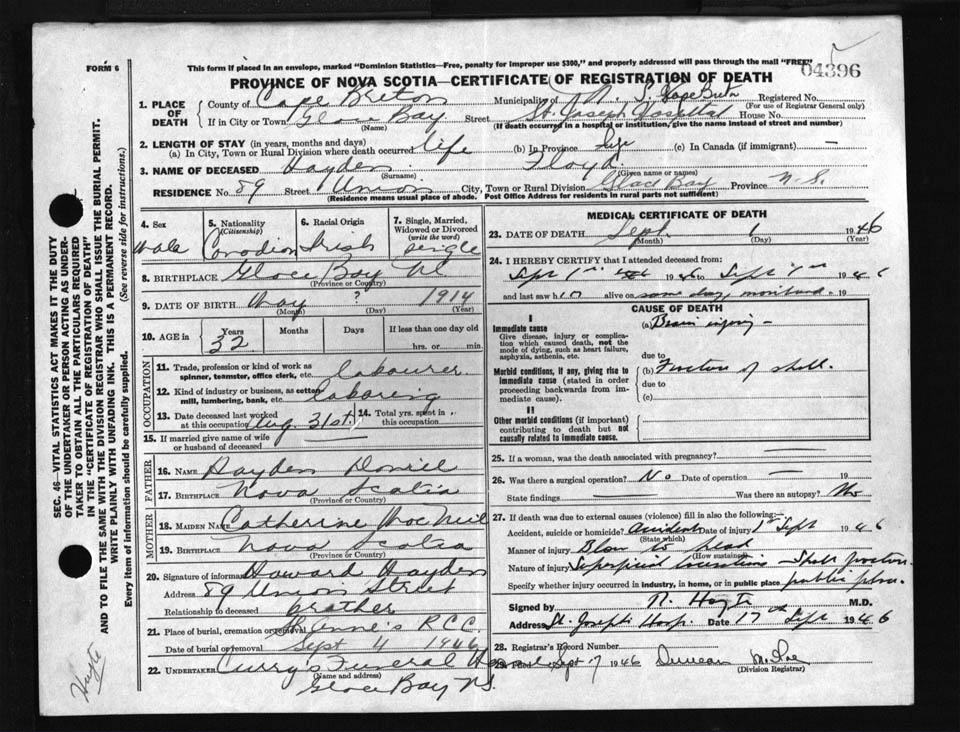 FORM 6
This form if placed in an envelope, marked "Dominion Statistics—Free, penalty for improper use $300," and properly addressed will pass through the mail "FREE"
04396
PROVINCE OF NOVA SCOTIA—CERTIFICATE OF REGISTRATION OF DEATH
1. PLACE OF DEATH
County of Cape Breton Municipality of N. S. Cape Breton Registered No.
(For use of Registrar General only)
If in City or Town Glace Bay Street St. Joseph Hospital House No.
(Name) (If death occurred in a hospital or institution, give the name instead of street and number)
2. LENGTH OF STAY (in years, months and days)
(a) In City, Town or Rural Division where death occurred life (b) In Province life (c) In Canada (if immigrant) —
3. NAME OF DECEASED Hayden Floyd
(Surname) (Given name or names)
RESIDENCE No. 89 Street Union City, Town or Rural Division Glace Bay Province N.S.
(Residence means usual place of abode. Post Office Address for residents in rural parts not sufficient)
4. Sex Male
5. Nationality (Citizenship) Canadian
6. Racial Origin Irish
7. Single, Married, Widowed or Divorced (write the word) Single
8. BIRTHPLACE Glace Bay NS
(Province or Country)
9. DATE OF BIRTH May ? 1914
(Month) (Day) (Year)
10. AGE in Years 32 Months Days If less than one day old
hrs. or min.
OCCUPATION
11. Trade, profession or kind of work as spinner, teamster, office clerk, etc. labourer
12. Kind of industry or business, as cotton mill, lumbering, bank, etc. laboring
13. Date deceased last worked at this occupation Aug. 31st. 14. Total yrs. spent in this occupation
15. If married give name of wife or husband of deceased
FATHER
16. NAME Hayden Daniel
17. BIRTHPLACE Nova Scotia
(Province or Country)
MOTHER
18. MAIDEN NAME Catherine MacNeil
19. BIRTHPLACE Nova Scotia
(Province or Country)
20. Signature of informant Howard Hayden
Address 89 Union Street
Relationship to deceased brother
21. Place of burial, cremation or removal St Anne's R.C.C.
Date of burial or removal Sept 4 1946
22. UNDERTAKER Curry's Funeral Home
(Name and address)
Glace Bay NS.
MEDICAL CERTIFICATE OF DEATH
23. DATE OF DEATH Sept 1 1946
(Month) (Day) (Year)
24. I HEREBY CERTIFY that I attended deceased from:
Sept 1st 1946 to Sept 1st 1946
and last saw him alive on same day, moribund. 19
CAUSE OF DEATH
I
Immediate cause (a) Brain injury —
Give disease, injury or complication which caused death, not the mode of dying, such as heart failure, asphyxia, asthenia, etc.
due to
Morbid conditions, if any, giving rise to immediate cause (stated in order proceeding backwards from immediate cause).
(b) Fracture of skull.
due to
(c)
II
Other morbid conditions (if important) contributing to death but not causally related to immediate cause.
25. If a woman, was the death associated with pregnancy? —
26. Was there a surgical operation? No Date of operation — 19
State findings — Was there an autopsy? No
27. If death was due to external causes (violence) fill in also the following:—
Accident, suicide or homicide? Accident Date of injury 1st Sept 1946
(State which)
Manner of injury Blow to head
(How sustained)
Nature of injury Superficial lacerations — Skull fracture.
Specify whether injury occurred in industry, in home, or in public place public place.
Signed by M.D.
Address St. Joseph's Hosp. Date 17th Sept 1946
28. Registrar's Record Number
29. Filed Sept 17 1946 Duncan
(Division Registrar)
SEC. 46—VITAL STATISTICS ACT MAKES IT THE DUTY OF THE UNDERTAKER OR PERSON ACTING AS UNDERTAKER TO OBTAIN ALL THE PARTICULARS REQUIRED IN THE "CERTIFICATE OF REGISTRATION OF DEATH" AND TO FILE THE SAME WITH THE DIVISION REGISTRAR WHO SHALL ISSUE THE BURIAL PERMIT.
WRITE PLAINLY WITH UNFADING INK. THIS IS A PERMANENT RECORD.
Every item of information should be carefully supplied. (See reverse side for instructions.)